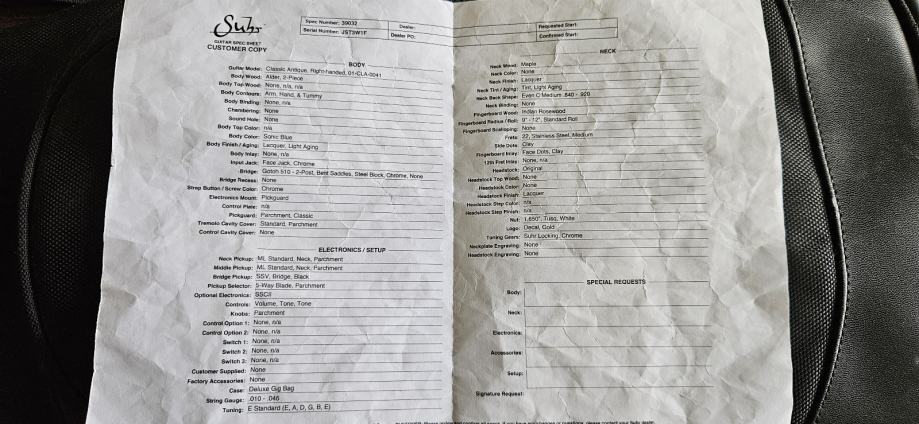 Suhr
GUITAR SPEC SHEET
CUSTOMER COPY
Spec Number: 39032
Serial Number: JST3W1F
Dealer:
Dealer PO:
Requested Start:
Confirmed Start:
BODY
Guitar Model: Classic Antique, Right-handed, 01-CLA-0041
Body Wood: Alder, 2-Piece
Body Top Wood: None, n/a, n/a
Body Contours: Arm, Hand, & Tummy
Body Binding: None, n/a
Chambering: None
Sound Hole: None
Body Top Color: n/a
Body Color: Sonic Blue
Body Finish / Aging: Lacquer, Light Aging
Body Inlay: None, n/a
Input Jack: Face Jack, Chrome
Bridge: Gotoh 510 - 2-Post, Bent Saddles, Steel Block, Chrome, None
Bridge Recess: None
Strap Button / Screw Color: Chrome
Electronics Mount: Pickguard
Control Plate: n/a
Pickguard: Parchment, Classic
Tremolo Cavity Cover: Standard, Parchment
Control Cavity Cover: None
ELECTRONICS / SETUP
Neck Pickup: ML Standard, Neck, Parchment
Middle Pickup: ML Standard, Neck, Parchment
Bridge Pickup: SSV, Bridge, Black
Pickup Selector: 5-Way Blade, Parchment
Optional Electronics: SSCII
Controls: Volume, Tone, Tone
Knobs: Parchment
Control Option 1: None, n/a
Control Option 2: None, n/a
Switch 1: None, n/a
Switch 2: None, n/a
Switch 3: None, n/a
Customer Supplied: None
Factory Accessories: None
Case: Deluxe Gig Bag
String Gauge: .010 - .046
Tuning: E Standard (E, A, D, G, B, E)
NECK
Neck Wood: Maple
Neck Color: None
Neck Finish: Lacquer
Neck Tint / Aging: Tint, Light Aging
Neck Back Shape: Even C Medium .840 - .920
Neck Binding: None
Fingerboard Wood: Indian Rosewood
Fingerboard Radius / Roll: 9" - 12", Standard Roll
Fingerboard Scalloping: None
Frets: 22, Stainless Steel, Medium
Side Dots: Clay
Fingerboard Inlay: Face Dots, Clay
12th Fret Inlay: None, n/a
Headstock: Original
Headstock Top Wood: None
Headstock Color: None
Headstock Finish: Lacquer
Headstock Step Color: n/a
Headstock Step Finish: n/a
Nut: 1.650", Tusq, White
Logo: Decal, Gold
Tuning Gears: Suhr Locking, Chrome
Neckplate Engraving: None
Headstock Engraving: None
SPECIAL REQUESTS
Body:
Neck:
Electronics:
Accessories:
Setup:
Signature Request: